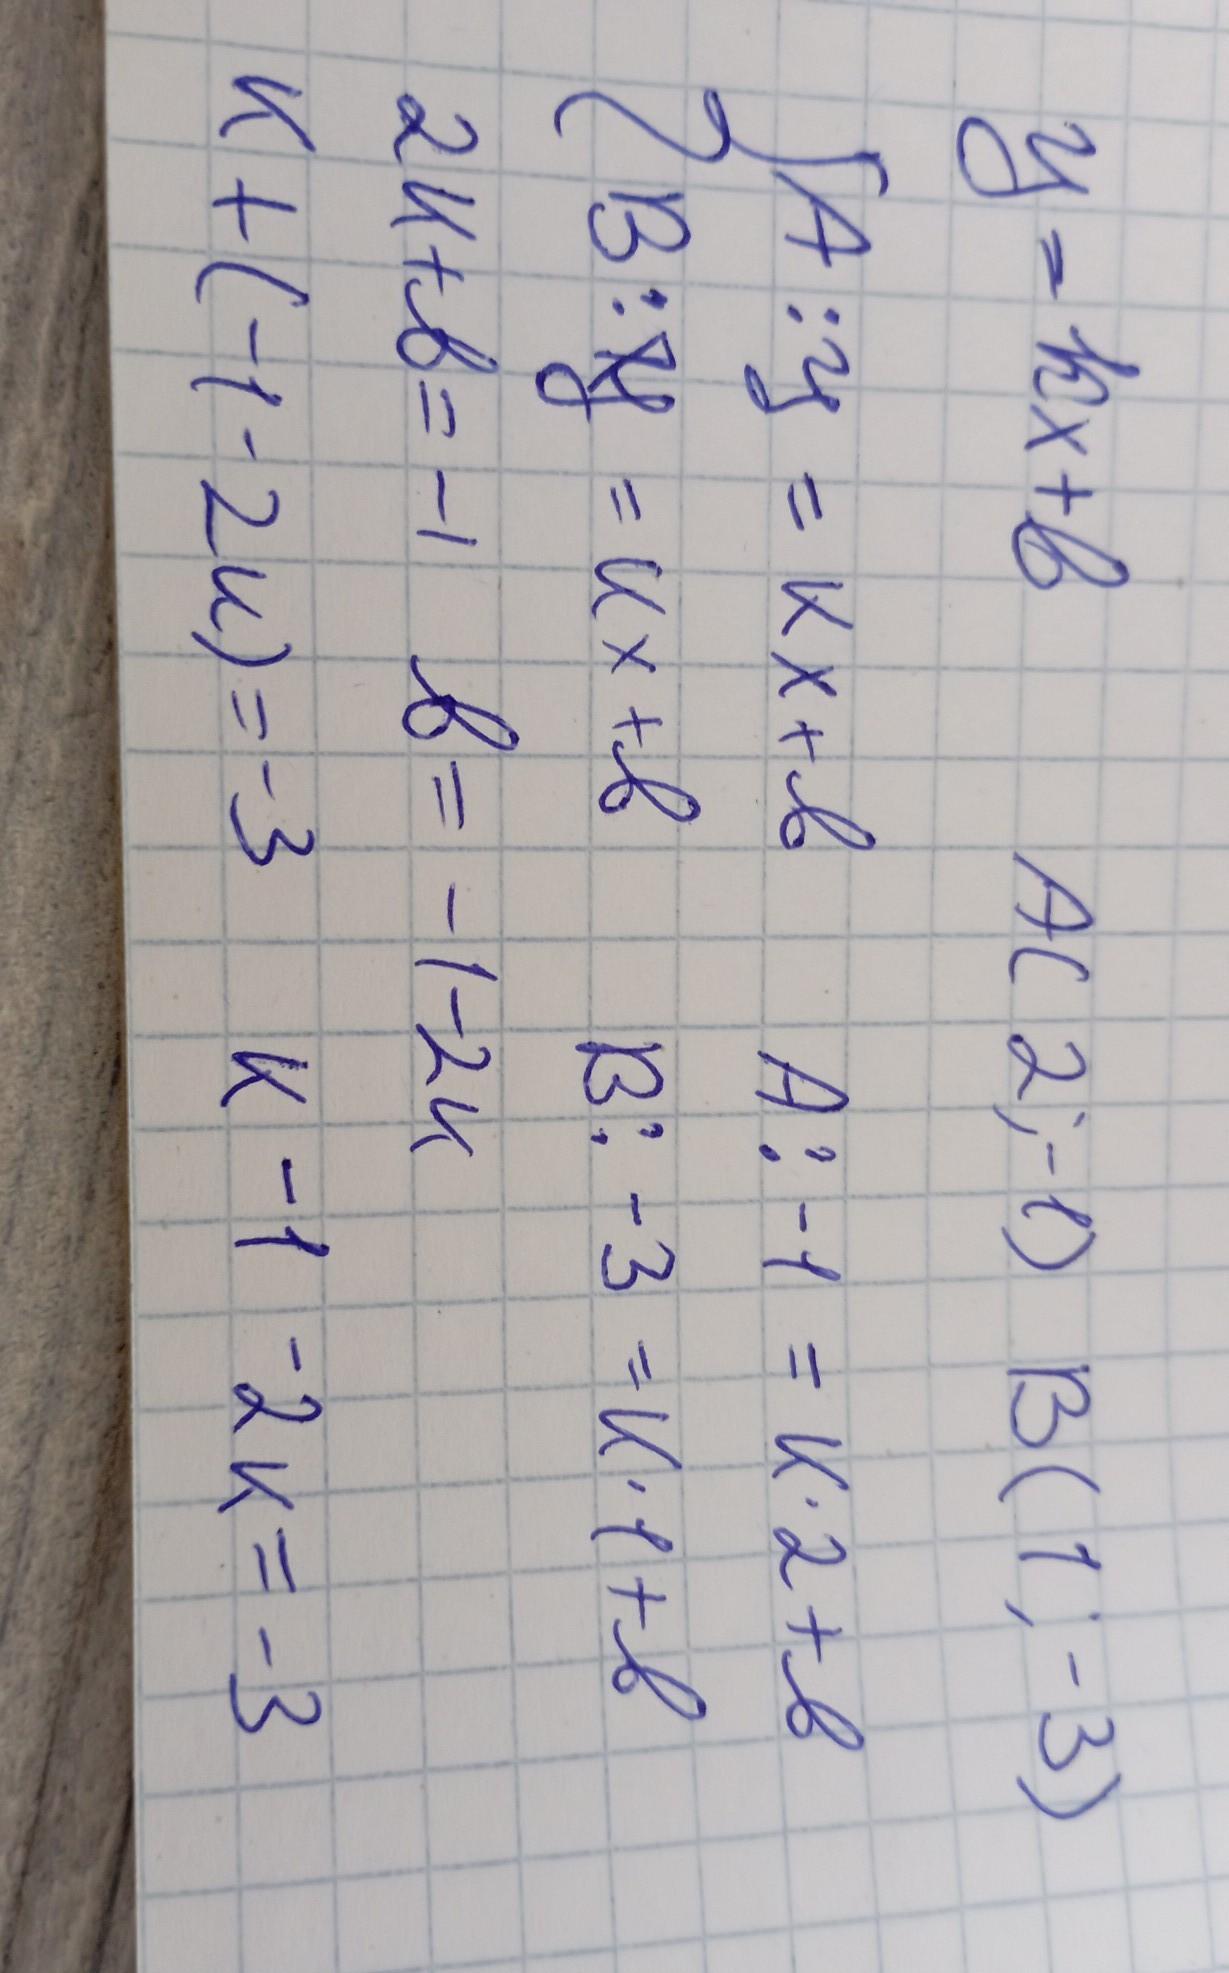 y = kx + b A(2; -1) B(1; -3)
A: y = kx + b A: -1 = k·2 + b
B: y = kx + b B: -3 = k·1 + b
2k + b = -1 b = -1 - 2k
k + (-1 - 2k) = -3 k - 1 - 2k = -3